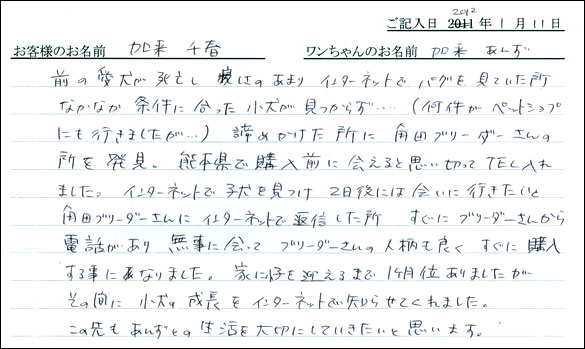 ご記入日 2012 年 1 月 11 日
お客様のお名前 加来 千春 ワンちゃんのお名前 加来 あんず
前の愛犬が死とし 寂しさのあまり インターネットで パグを見ていた所
なかなか 条件に合った小犬が見つからず…‥ (何件か ペットショップ
にも行きましたが…) 諦めかけた所に 角田ブリーダーさんの
所を発見。 熊本県で購入前に会えると思い切って TEL入れ
ました。 インターネットで子犬を見つけ 2日後には会いに行きたいと
角田ブリーダーさんに インターネットで返信した所 すぐにブリーダーさんから
電話があり 無事に会って ブリーダーさんの人柄も良く すぐに購入
する事になりました。 家に仔を迎えるまで 1ヶ月位ありましたが
その間に 小犬の成長をインターネットで知らせてくれました。
この先も あんずとの生活を大切にしていきたいと思います。